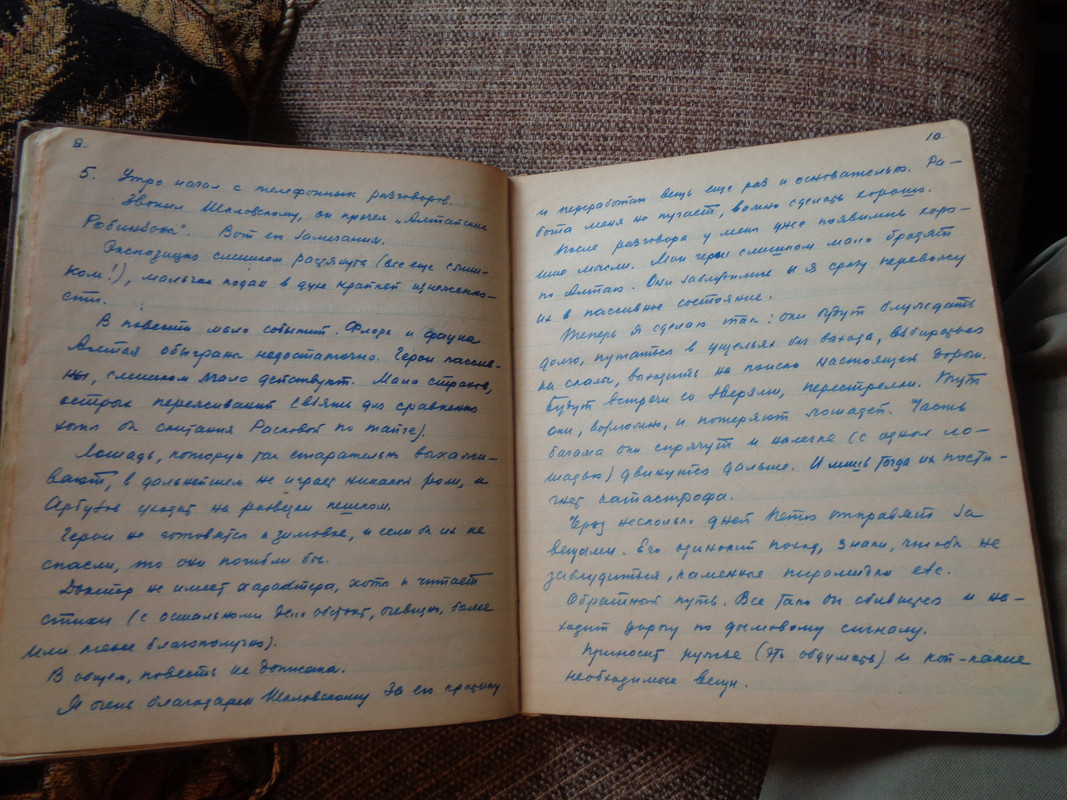 8.
5. Утро начал с телефонных разговоров.
Звонил Шкловскому, он прочел „Алтайские
Робинзоны". Вот его замечания.
Экспозиция слишком растянута (все еще слиш-
ком!), мальчик подан в духе крайней изнеженно-
сти.
В повести мало событий. Флора и фауна
Алтая обыграны недостаточно. Герои пассив-
ны, слишком мало действуют. Мало страхов,
острых переживаний (возьми для сравнения
хотя бы скитания Расковой по тайге).
Лошадь, которую так старательно выхажи-
вают, в дальнейшем не играет никакой роли, и
Арбузов уходит на разведки пешком.
Герои не готовятся к зимовке, и если бы их не
спасли, то они погибли бы.
Доктор не имеет характера, хотя и читает
стихи (с остальными дело обстоит, очевидно, более
или менее благополучно).
В общем, повесть не дожата.
Я очень благодарен Шкловскому за его правдивую
10.
и переработаю вещь еще раз и основательно. Ра-
бота меня не пугает, важно сделать хорошо.
После разговора у меня уже появились хоро-
шие мысли. Мои герои слишком мало бродят
по Алтаю. Они заблудились и я сразу перевожу
их в пассивное состояние.
Теперь я сделаю так: они будут блуждать
долго, путаться в ущельях без выхода, взбираться
на скалы, выходить на поиски настоящей дороги.
Будут встречи со зверями, перестрелки. Тут
они, возможно, и потеряют лошадей. Часть
багажа они спрячут и налегке (с одной ло-
шадью) двинутся дальше. И лишь тогда их пости-
гнет катастрофа.
Через несколько дней отправят за
вещами. Его одинокий поход, знаки, чтобы не
заблудиться, каменные пирамидки etc.
Обратный путь. Все таки он сбивается и на-
ходит дорогу по дымовому сигналу.
Приносит ружье (это обдумать) и кой-какие
необходимые вещи.